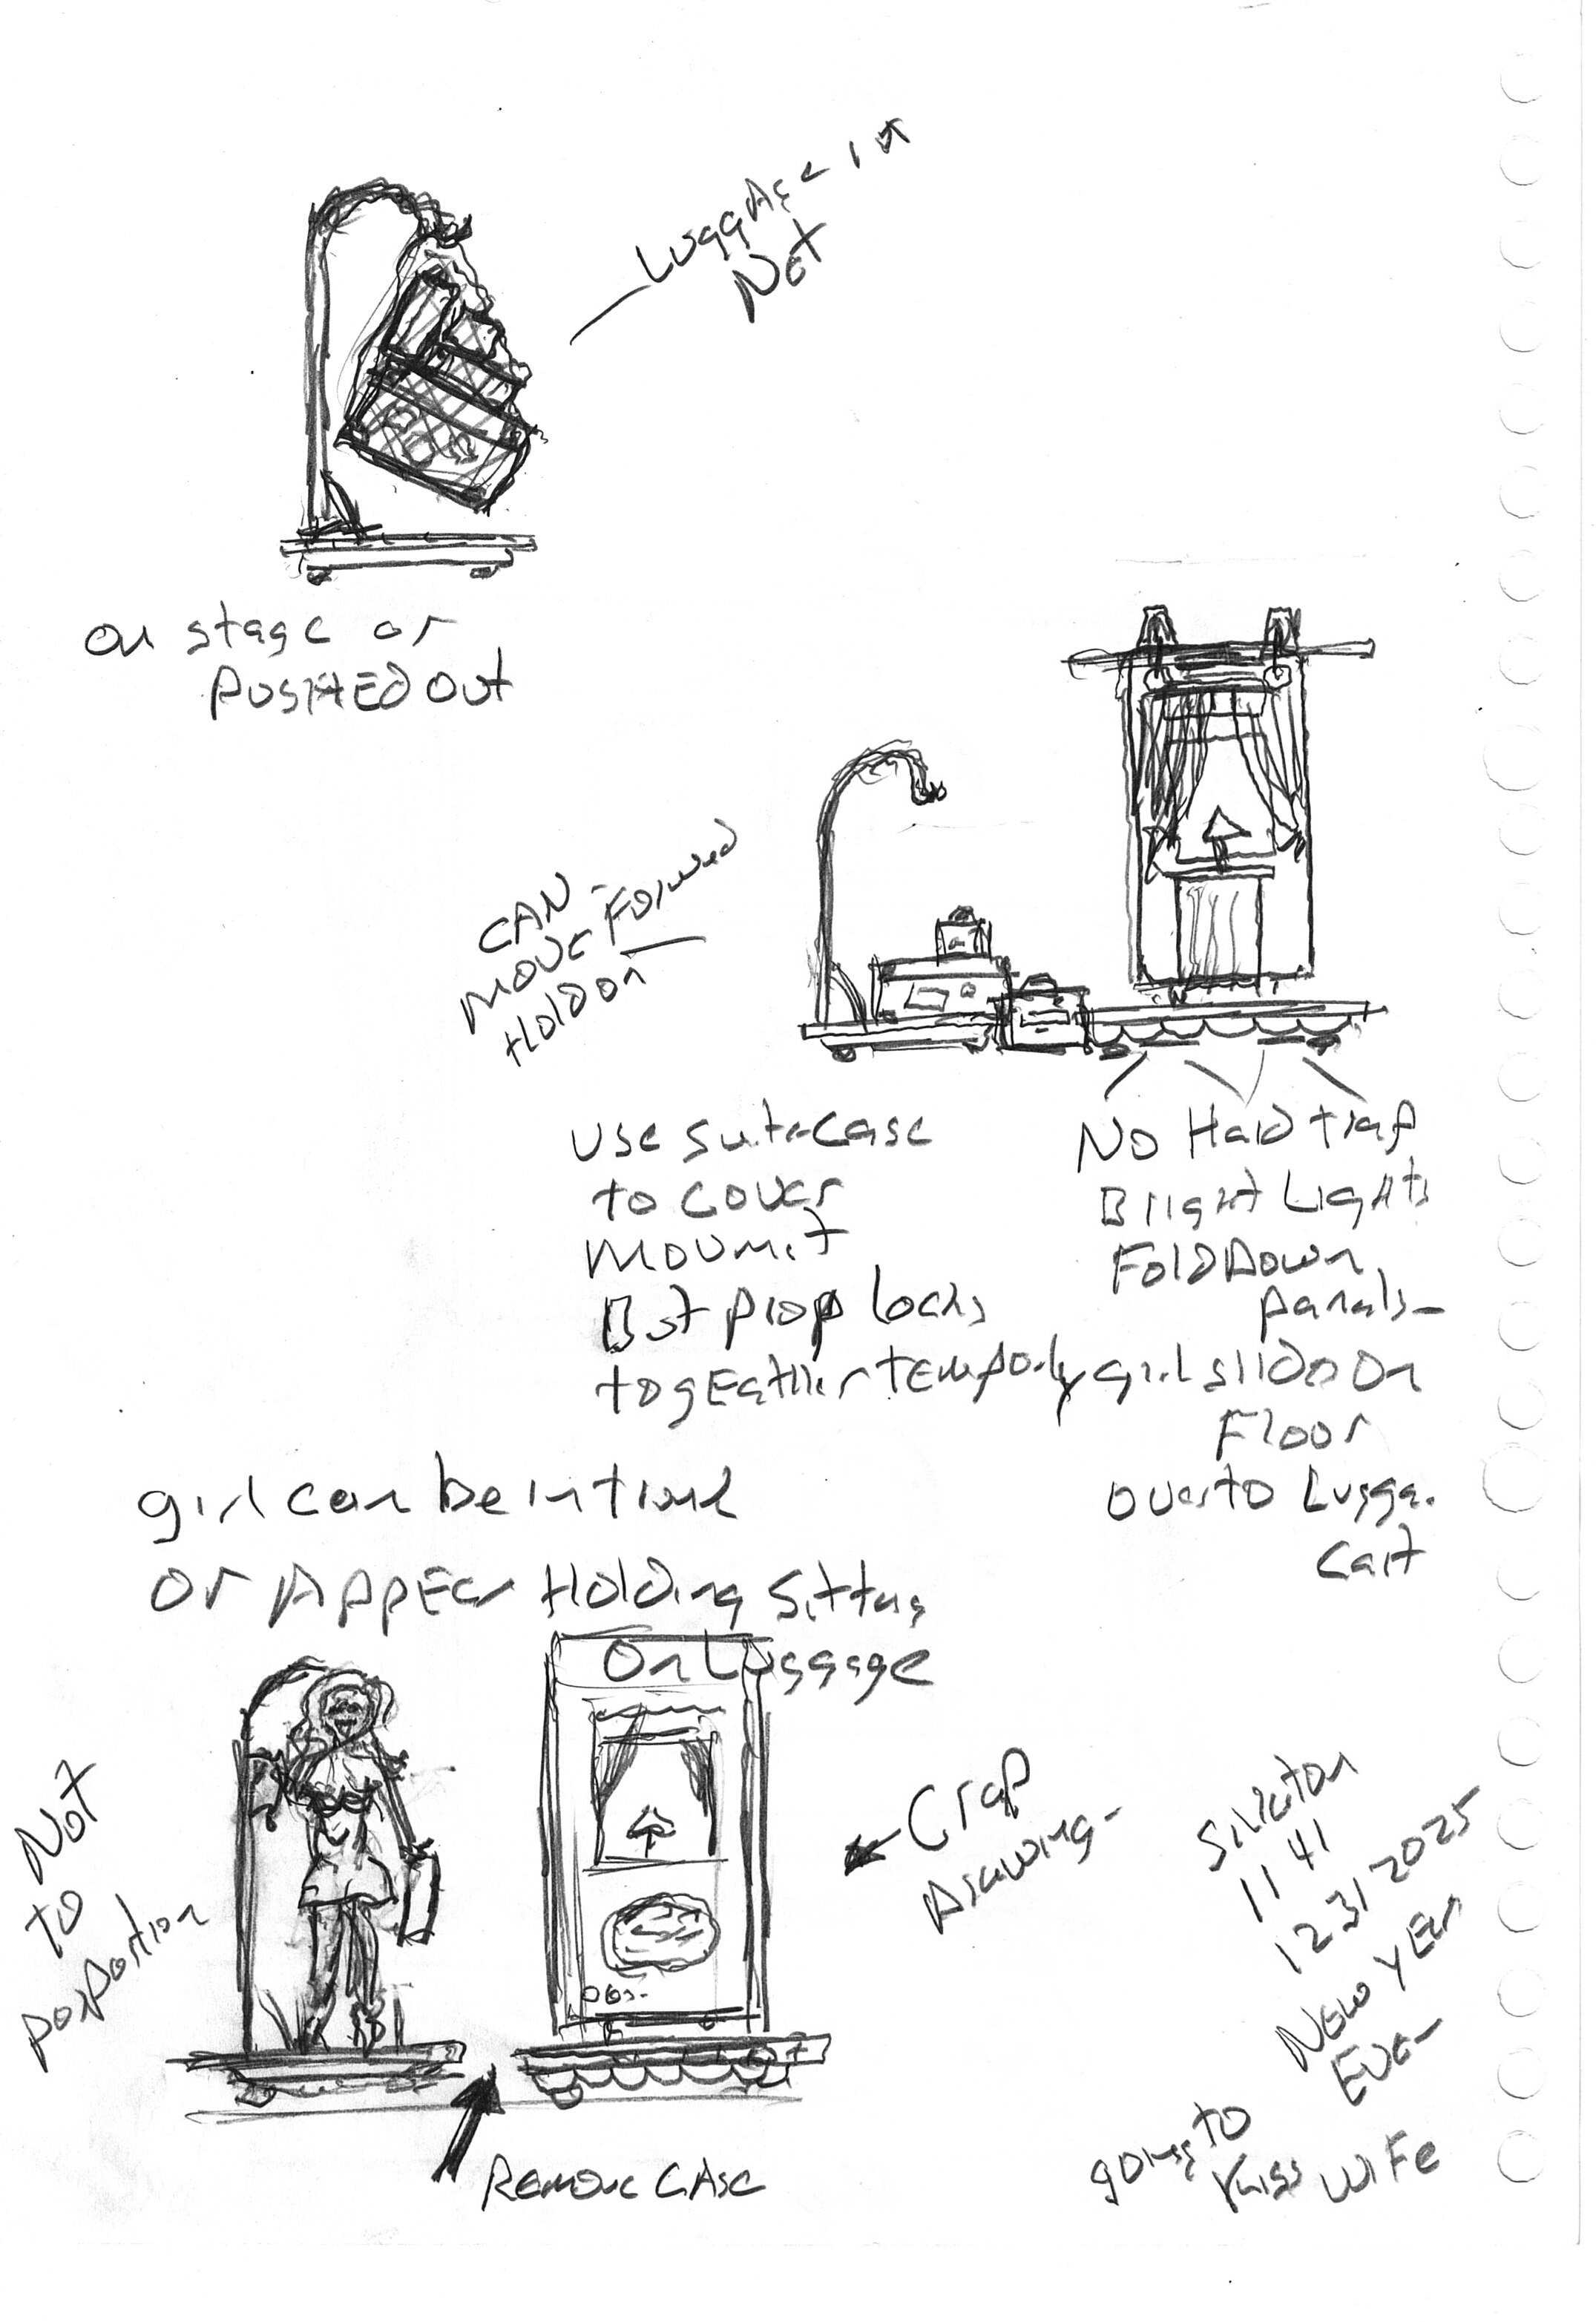 Luggage in
Net
on stage or
PUSHED OUT
CAN
MOVE FORWED
HOLD ON
USE suitecase
to cover
But prop locks
togeather temporly
No Hard trap
Bright Lights
Fold Down
panels-
girl slido on
Floor
Luggage
Cart
girl can be in trunk
or APPEAr Holding Sitting
On Luggage
Not
to
poportion
Crap
Drawing-
11 41
12 31 2025
New YEAr
EVE-
going to
Kiss WiFe
REMOVE CASE